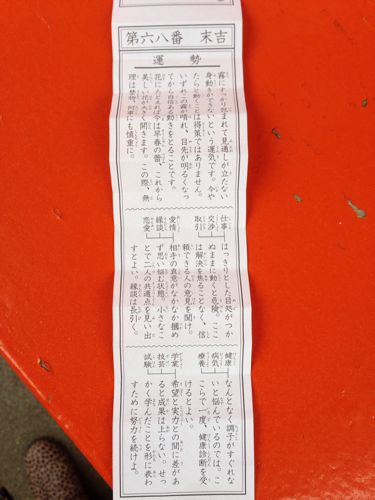 第六八番 末吉
運勢
霧にすっかり包まれて見通しが立たない
身動きができないという運気です。今や
たらと動くことは得策ではありません。
いずれこの霧が晴れ、目先が明るくなっ
てから自信ある動きをとることです。
花にたとえれば今は早春の蕾、これから
美しい花が大きく開きます。この際、無
理は禁物、何事にも慎重に。
仕事
交渉
取引
はっきりとした目処がつか
ぬままに動くと危険。ここ
は解決を焦ることなく、信
頼できる人の意見を聞け。
愛情
縁談
恋愛
相手の真意がなかなか掴め
ず思い悩む状態。小さなこ
とで二人の共通点を見い出
すとよい。縁談は長引く。
健康
病気
療養
なんとなく調子がすぐれな
いと悩んでいるのでは。こ
こらで一度、健康診断を受
けるとよい。
学業
技芸
試験
希望と実力との間に差があ
ると成果は上らない。せっ
かく学んだことを形に表わ
すために努力を続けよ。